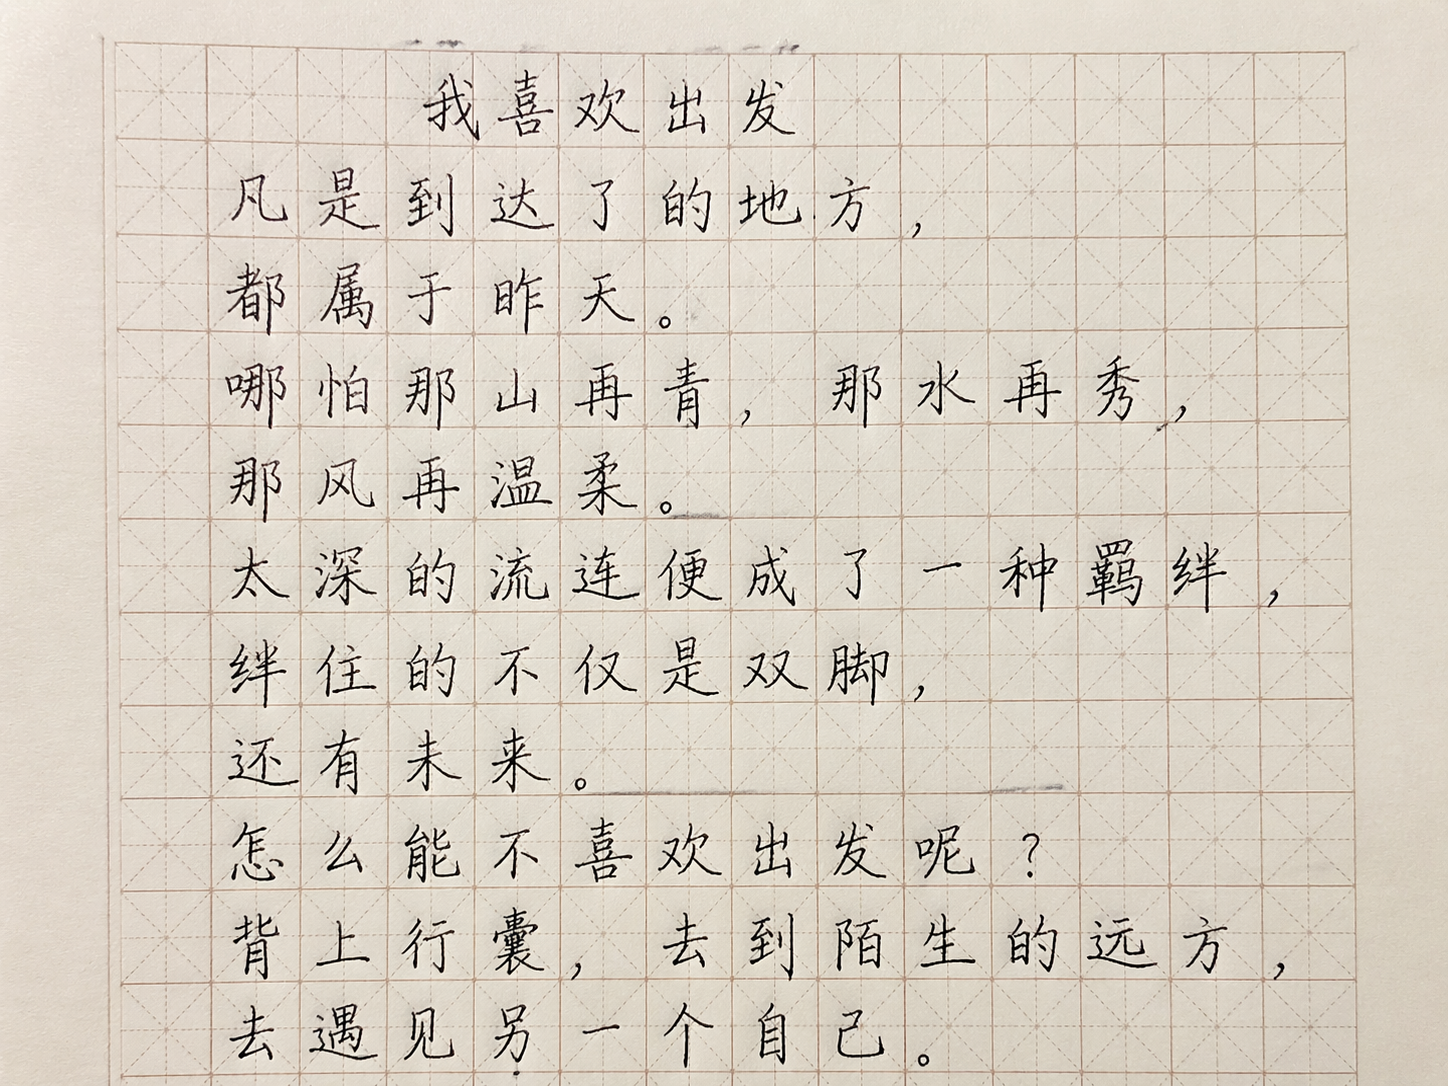 我喜欢出发
凡是到达了的地方，
都属于昨天。
哪怕那山再青，那水再秀，
那风再温柔。
太深的流连便成了一种羁绊，
绊住的不仅是双脚，
还有未来。
怎么能不喜欢出发呢？
背上行囊，去到陌生的远方，
去遇见另一个自己。